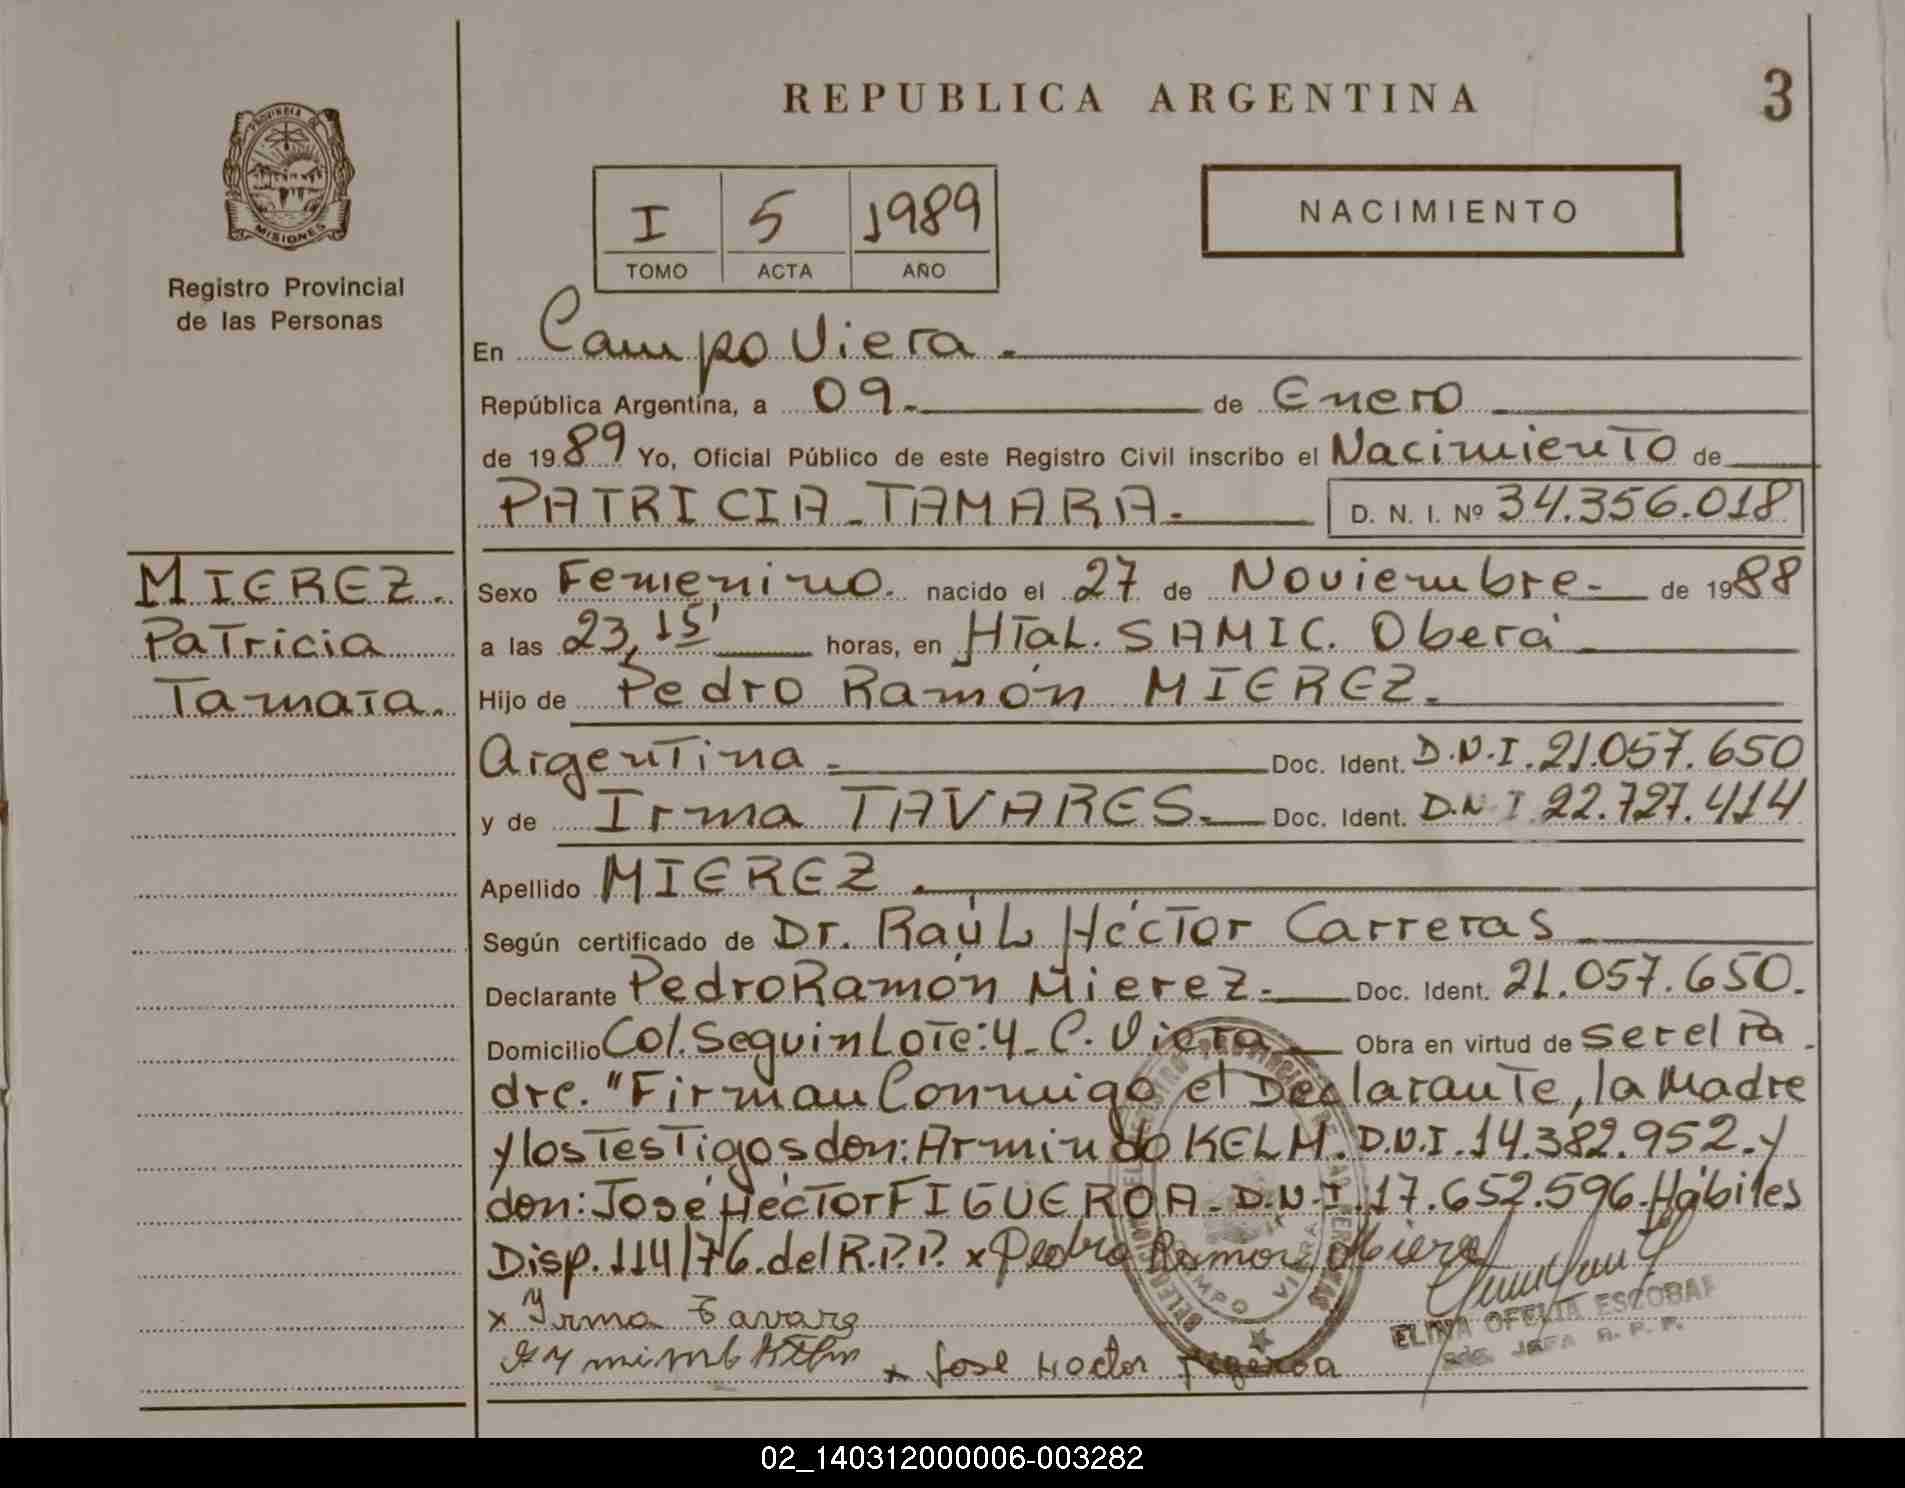 REPUBLICA ARGENTINA
3
PROVINCIA DE
MISIONES
Registro Provincial
de las Personas
I 5 1989
TOMO ACTA AÑO
NACIMIENTO
En Campo Viera.
República Argentina, a 09. de Enero
de 1989 Yo, Oficial Público de este Registro Civil inscribo el Nacimiento de
PATRICIA TAMARA. D. N. I. Nº 34.356.018
MIEREZ.
Patricia
Tamara.
Sexo Femenino. nacido el 27 de Noviembre- de 1988
a las 23,15' horas, en HTaL. SAMIC. Oberá
Hijo de Pedro Ramón MIEREZ.
Argentina - Doc. Ident. D.N.I. 21.057.650
y de Irma TAVARES. Doc. Ident. D.N I 22.727.414
Apellido MIEREZ.
Según certificado de Dr. Raúl Héctor Carreras
Declarante Pedro Ramón Mierez. Doc. Ident. 21.057.650.
Domicilio Col. Seguin Lote: 4_ C. Viera Obra en virtud de ser el Pa
dre. "Firman Conmigo el Declarante, la Madre
y los Testigos don: Armindo KELM. D.N.I. 14.382.952. y
don: José Héctor FIGUEROA. D.N.I 17.652.596. Hábiles
Disp. 114/76. del R.P.P. x Pedro Ramon Miere
x Irma Tavare
x Jose Hector Figeroa
CAMPO VIERA
ELINA OFELIA ESCOBAR
JEFA R. P. P.
02_140312000006-003282